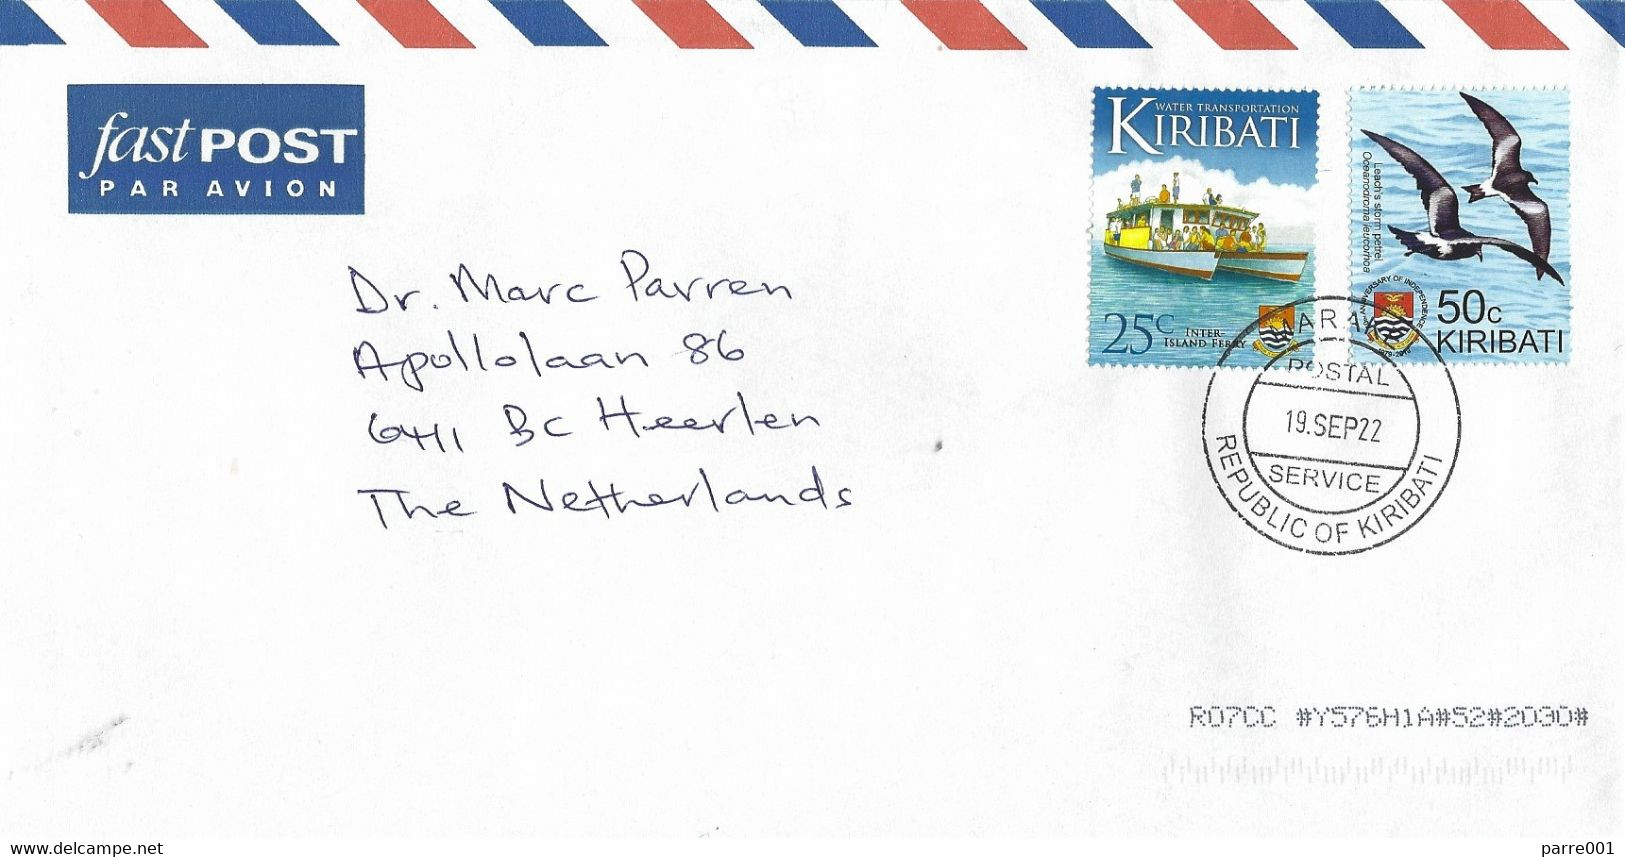 fast POST
PAR AVION
WATER TRANSPORTATION
KIRIBATI
25c
INTER-
ISLAND FERRY
Leach's storm petrel
Oceanodroma leucorrhoa
ANNIVERSARY OF INDEPENDENCE
50c
KIRIBATI
POSTAL
19.SEP22
SERVICE
REPUBLIC OF KIRIBATI
Dr. Marc Parren
Apollolaan 86
6411 BC Heerlen
The Netherlands
R07CC #Y576H1A#52#2030#
www.delcampe.net
parre001